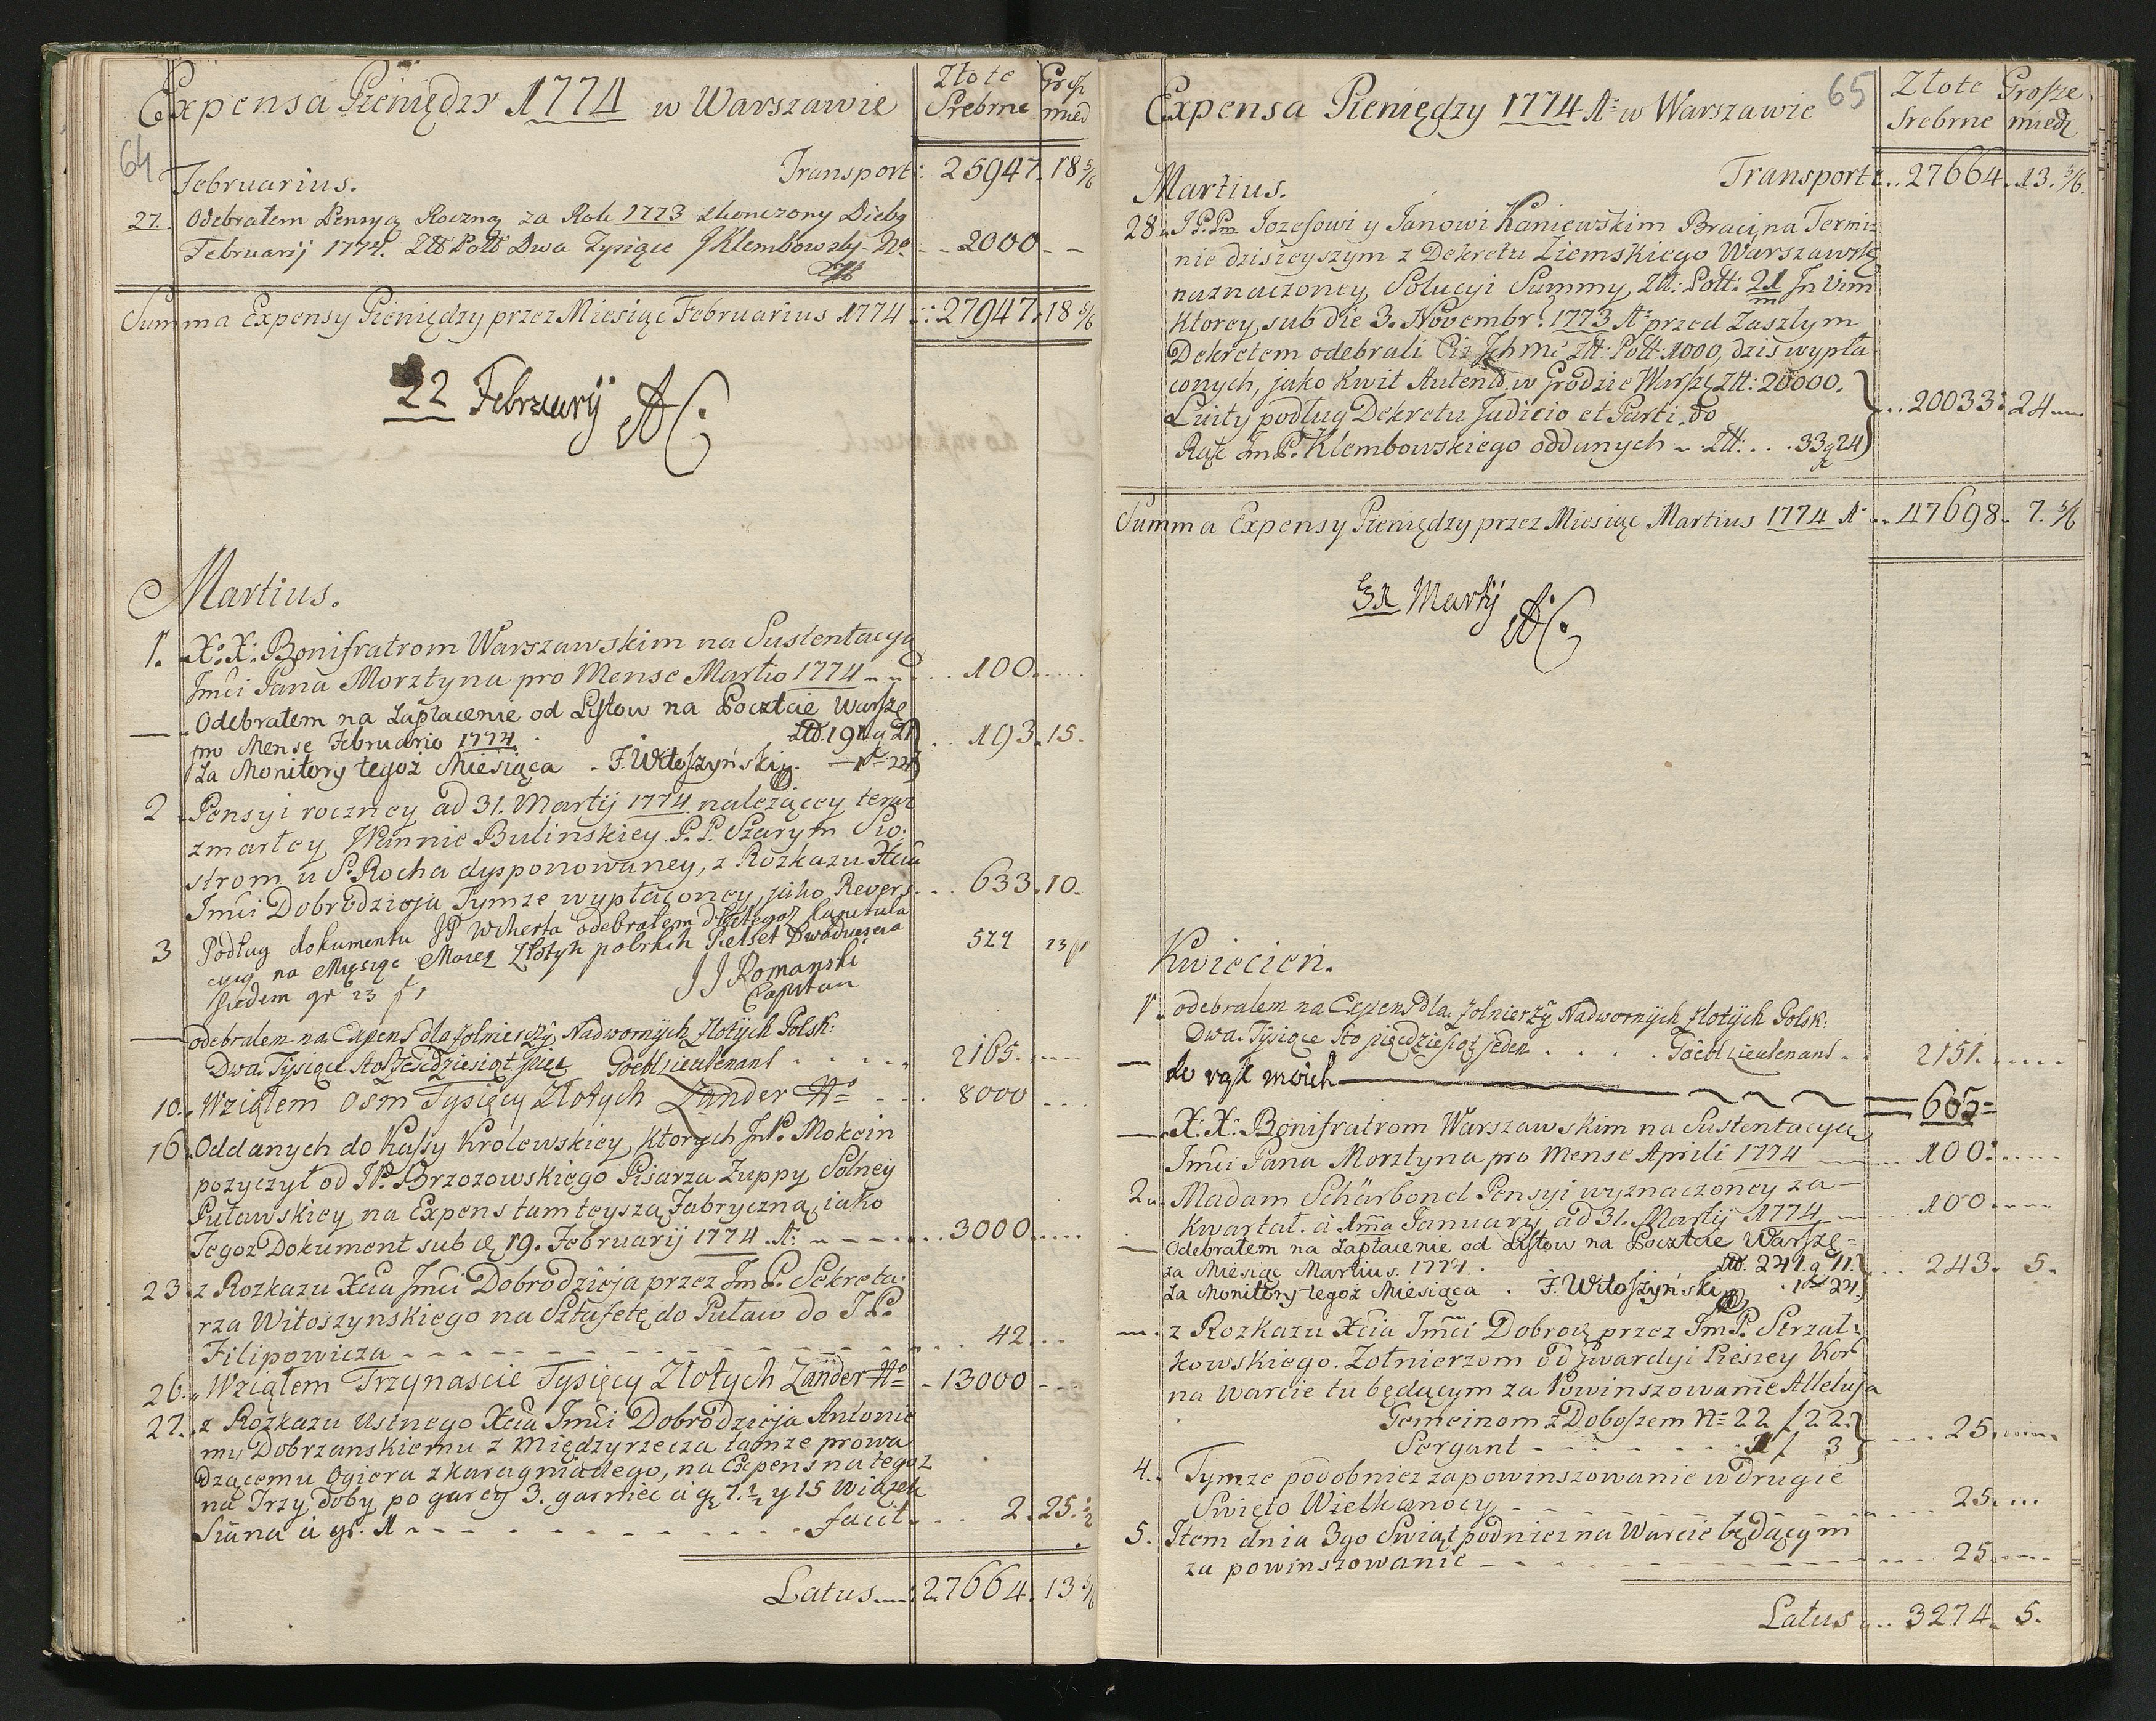 Expensa Pieniędzy 1774 w Warszawie
Złote Grosz
Srebrne mied
64
Februarius. Transport: 25947. 18 5/6
27. Odebrałem Pensyą Roczną za Rok 1773 skonczony Diebg
Februarij 1774. Złł Poll Dwa Tysiące JKlembowsky - 2000 - -
Summa Expensy Pieniędzy przez Miesiąc Februarius 1774 : 27947. 18 5/6
22 February AC
Martius.
1. X: X: Bonifratrom Warszawskim na Sustentacyą
Jmći Pana Morztyna pro Mense Martio 1774 - - . . 100. . . . .
— Odebrałem na Zapłacenie od Listow na Poczcie Warszę
pro Mense Februario 1774 . 191 g 21 } . . 193. 15.
za Monitory tegoż Miesiąca - F. Witoszyński. — 1 " 24
2. Pensyi roczney ad 31. Martij 1774 należącey teraz
zmarłey Wannie Bulinskiey P. P. Szarym Sio:
strom u S. Rocha dysponowaney, z Rozkazu Xcia
Jmći Dobrodzieja Tymze wypłaconey, jako Revers. . . 633. 10.
3 Podług dokumentu JP Wcherta odebrałem dla tegoż Kapitula
cyią na Mięsiąc Marzą Złotych polskich Piecset Dwadziescia
524 23 f 1
siedem gr 23 f 1 J J Romanski
Capitan
— odebralem na Expens dla żolnierzy Nadwornych złotych Polsk:
Dwa Tysiące sto szescdziesiąt pięc Goebl Lieutenant . . . . 2165. . . . .
10. Wziąłem Osm Tysięcy Złotych Zander - - . 8000 . . .
16. Oddanych do Kassy Krolewskiey, ktorych Jm P. Mokcin
pozyczył od JP. Brzozowskiego Pisarza Zuppy Solney
Puławskiey, na Expens tamteyszą Fabryczną, iako
Tegoz Dokument sub 19. Februarij 1774. A: - - - . . 3000. . . . .
23. z Rozkazu Xcia Jmći Dobrodzieja przez Jm P. Sekreta:
rza Witoszynskiego na Sztafetę do Puław do JP.
Filipowicza - - - - - - - - - - - . . 42. . .
26. Wziąłem Trzynascie Tysięcy Złotych Zander - 13000 - - -
27. z Rozkazu ustnego Xcia Jmći Dobrodzieja Antonie
mu Dobrzanskiemu z Międzyrzecza tamze prowa
dzącemu Ogiera zkarogniadego, na Expens na tegoz
na Trzy doby, po garcy 3. garniec a gr 7. 1/2 y 15 wiązek
Siana a gr. 1 - - - - - - - - - facit . . . 2. 25. 1/2
Latus : 27664. 13 5/6
Expensa Pieniędzy 1774 A: w Warszawie
65
Złote Grosze
Srebrne miedz
Transport . . 27664. 13. 5/6
Martius.
28. JP. Pm Jozefowi y Janowi Kaniewskim Braci, na Termi:
nie dzisieyszym z Dekretu Ziemskiego Warszawskę
naznaczoney Solucyi Summy Złł: Poll: 21/m In vim
ktorey, sub die 3. Novembr: 1773 A: przed Zaszłym
Dekretem odebrali Ciż Jchmć Złł: Poll: 1000, dzis wypła
conych, jako Kwit Autent. w Grodzie Warszę Złł: 20000.
Luity podług Dekretu Judicio et Parti. do } . . 20033: 24
Rąk Jm P. Klembowskiego oddanych - . Złł: . . . 33 g 24
Summa Expensy Pieniędzy przez Miesiąc Martius 1774 A . . 47698. 7. 5/6
31 Martij AC
Kwiecień.
1. odebralem na Expens dla żolnierzy Nadwornych złotych Polsk:
Dwa Tysiące sto pięcdziesiąt jeden . . . . Goebl Lieutenant - . 2151. . . . .
— do rąk moich — 605=
— X: X: Bonifratrom Warszawskim na Sustentacyą
Jmći Pana Morztyna pro Mense Aprili 1774 — . . . 100: . . . . .
2. Madam Schärbonel Pensyi wyznaczoney za —
Kwartał. a 1ma Januarij ad 31. Martij 1774 — . . 100. . . .
— Odebrałem na Zapłacenie od Listow na Poczcie Warszę=
za Miesiąc Martius. 1774. . 241. g 11. } . . 243. 5.
za Monitory tegoż Miesiąca . F. Witoszyński . 1 " 24.
— z Rozkazu Xcia Jmći Dobrodz przez Jm P. Strzał:
kowskiego. Zołnierzom od Gwardyi Pieszey Kor
na warcie tu będącym za Powinszowanie Alleluja
Gemeinom z Doboszem N= 22 / 22. }
Sergant - - - - - - - 1 / 3 } . . . 25. . . . .
4. Tymze podobniez za powinszowanie w drugie
Swięto Wielkanocy - - - - - - - . . 25. . . .
5. Item dnia 3go Swiąt podniez na Warcie będącym
za powinszowanie - - - - - - - . . . 25. . . .
Latus . . 3274. 5.